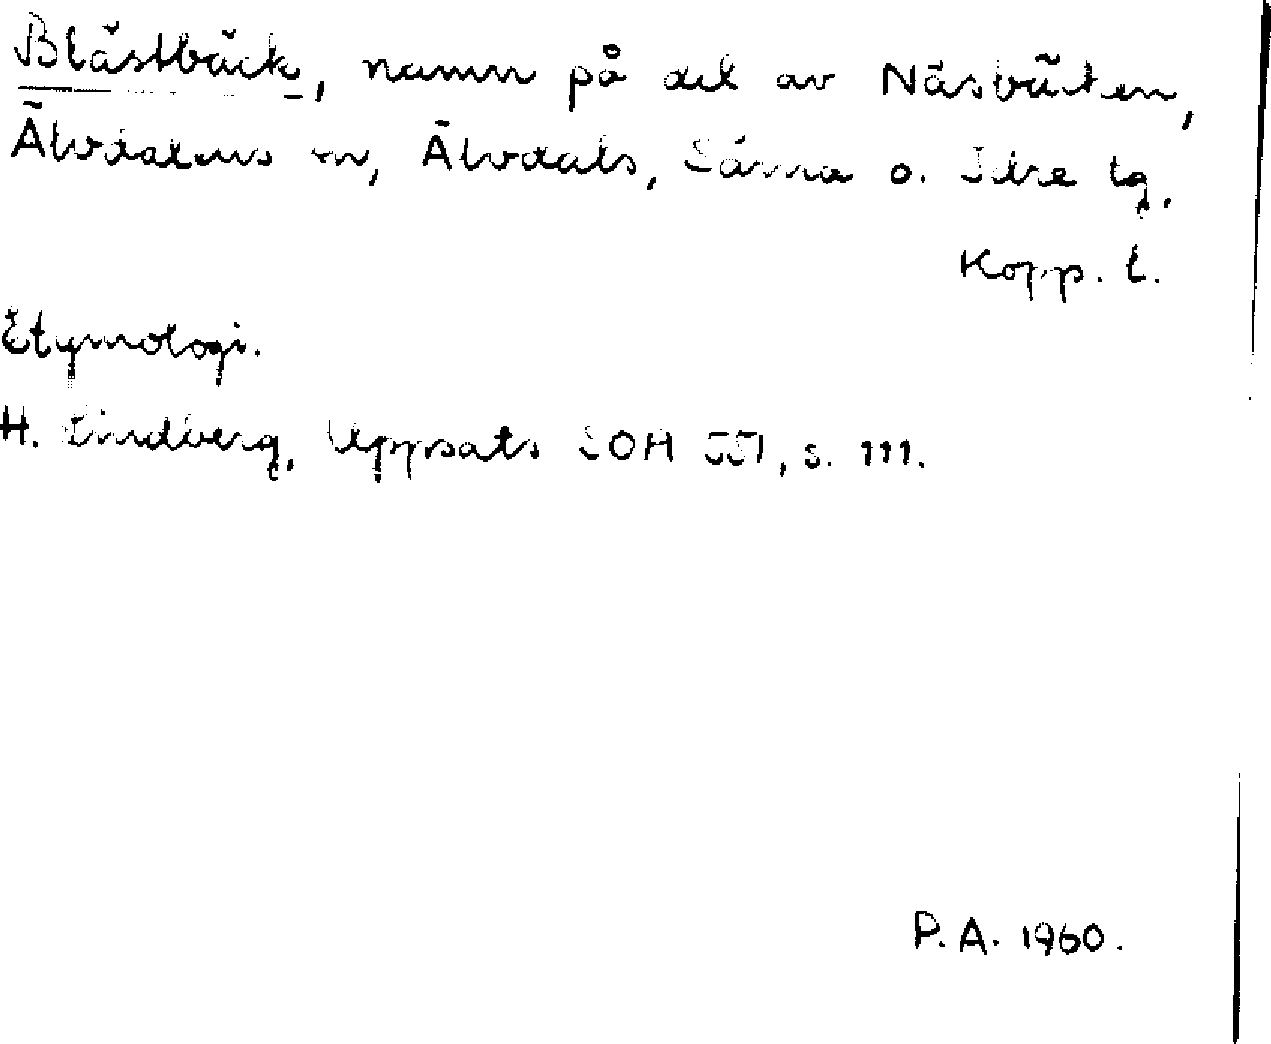 Blästbäck, namn på del av Näsbäcken,
Älvdalens sn, Älvdals, Särna o. Idre tg,
Kopp. l.
Etymologi.
H. Lindberg, Uppsats SOA 551, s. 111.
P.A. 1960.